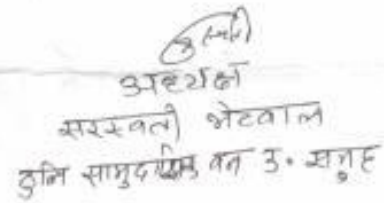 अध्यक्ष
सरस्वती भेटवाल
ठुलि सामुदायिक वन उ. समूह